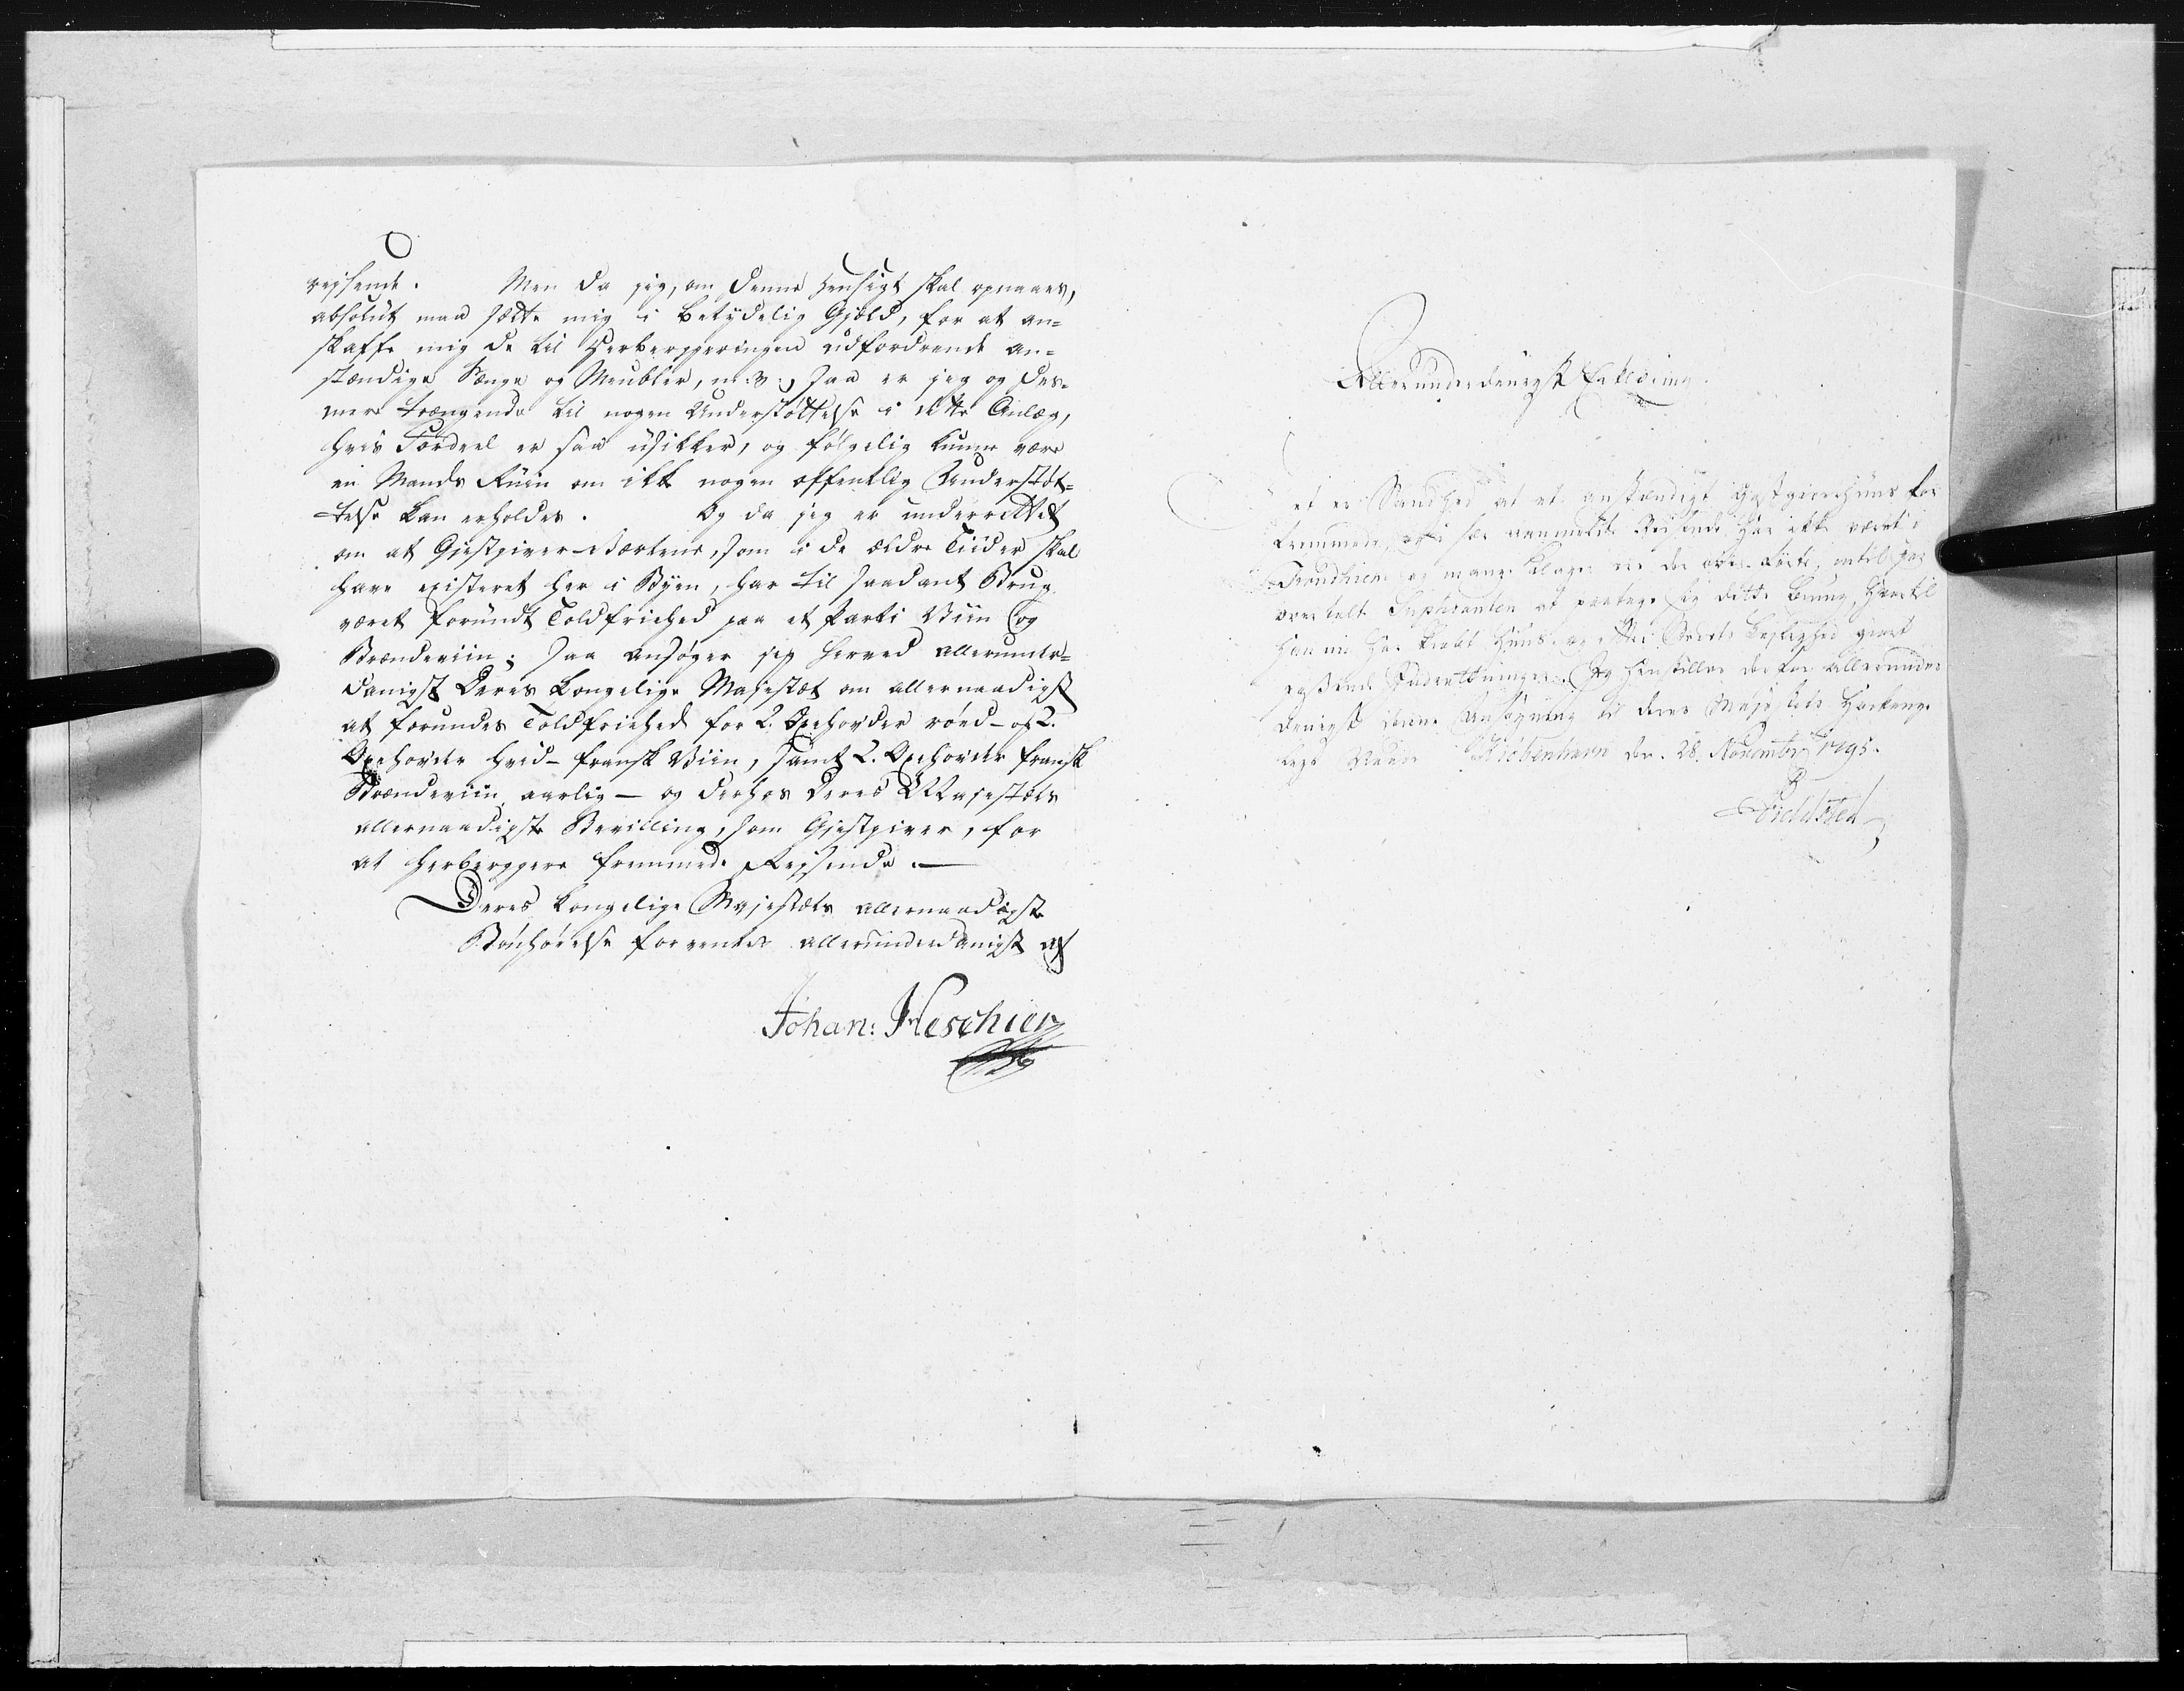 reisende. Men da jeg, om denne Hensigt skal opnaaes,
absolut maa sætte mig i betydelig Gjæld, for at an=
skaffe mig de til Herbergeringen udfordrende an=
stændige Senge og Meubler, m: v:, saa er jeg og des=
mere trængende til nogen Understøttelse i dette Anlæg,
hvis Fordeel er saa usikker, og følgelig kunne være
en Mands Ruin om ikke nogen offentlig Understøt=
telse kan erholdes. Og da jeg er underrettet
om at Gjestgiver-Værtene, som i de ældre Tiider skal
have existeret her i Byen, har til saadant Brug
været forundt Toldfriehed paa et Parti Viin og
Brændeviin; saa ansøger jeg herved allerunder=
danigst Deres Kongelige Majestæt om allernaadigst
at forundes Toldfriehed for 2. Oxehovder røed- og 2.
Oxehovder hvid- fransk Viin, samt 2. Oxehovder fransk
Brændeviin aarlig — og derhos Deres Majestæts
allernaadigste Bevilling, som Gjestgiver, for
at herbergere fremmede Reisende. —
Deres Kongelige Majestæts allernaadigste
Bønhørelse forventes allerunderdanigst af
Johan: Neschier
Allerunderdanigst Erklæring.
et er Sandhed at et anstændigt Gjestgiverhuus for
Fremmede, og i sær Reisende har ikke været i
Trondhiem og mange Klager er der over ført, indtil jeg
overtalt Suplicanten at paatage sig dette Brug, hvortil
han nu har kiøbt Huus og efter Stedets Leylighed giort
Indretninger. Jeg henstiller derfor allerunder
danigst denne Ansøgning til Deres Majestets
Kiøbenhavn den 28. November 1795.